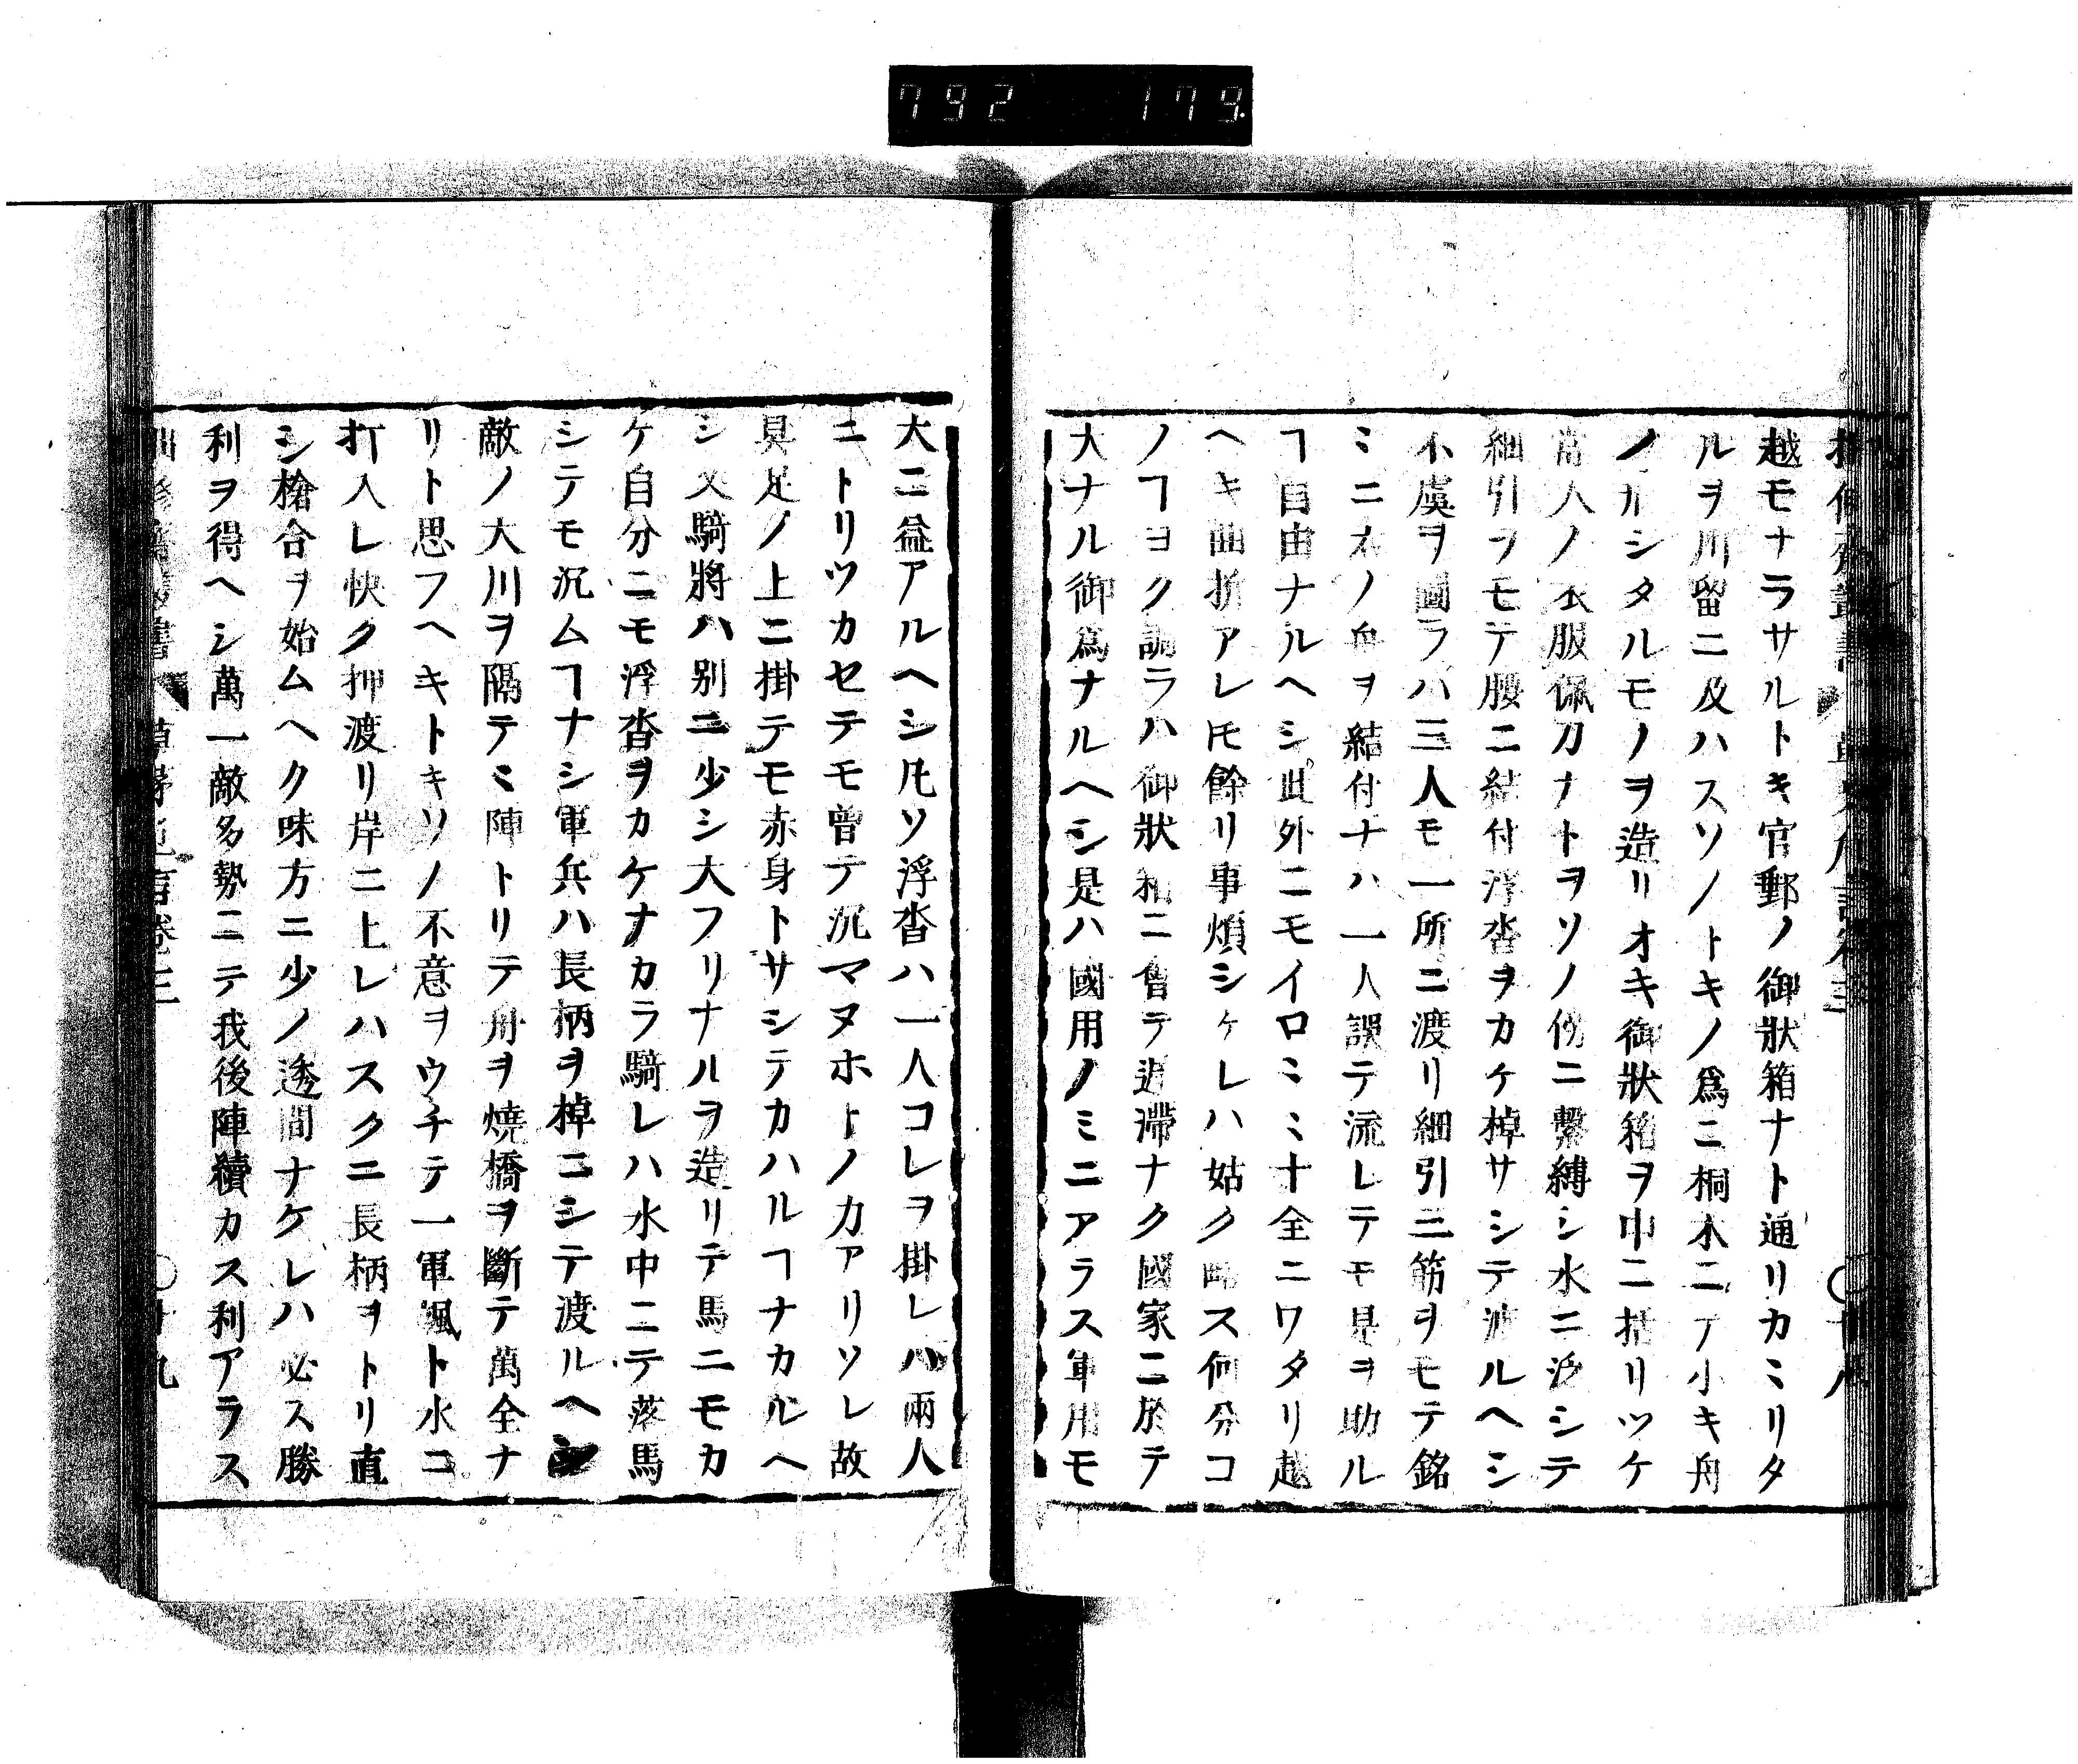 792 179
越モナラサルトキ官郵ノ御狀箱ナト通リカミリタ
ルヲ川留ニ及ハスソノトキノ爲ニ桐木ニテ小キ舟
ノカシタルモノヲ造リオキ御狀箱ヲ巾ニ括リツケ
人ノ衣服佩刀ナトヲソノ傍ニ繫縛シ水ニ シテ
細引ヲモテ腰ニ結付浮沓ヲカケ棹サシテ渡ルヘシ
不虞ヲ圖ラハ三人モ一所ニ渡リ細引三筋ヲモテ銘
ミニ ノ舟ヲ結付ナハ一人誤テ流レテモ是ヲ助ル
ヿ自由ナルヘシ此外ニモイロミヽ十全ニワタリ越
ヘキ曲折アレ𪜈餘リ事煩シケレハ姑ク略ス何分コ
ノヿヨク調ラハ御狀箱ニ曾テ遲滯ナク國家ニ於テ
大ナル御爲ナルヘシ是ハ國用ノミニアラス軍用モ
大ニ益アルヘシ凡ソ浮沓ハ一人コレヲ掛レハ兩人
ニトリツカセテモ曾テ沉マヌホトノカアリソレ故
具足ノ上ニ掛テモ赤身トサシテカハルヿナカルヘ
シ又騎將ハ別ニ少シ大フリナルヲ造リテ馬ニモカ
ケ自分ニモ浮沓ヲカケナカラ騎レハ水中ニテ落馬
シテモ沉ムヿナシ軍兵ハ長柄ヲ棹ニシテ渡ルヘシ
敵ノ大川ヲ隔テミ陣トリテ舟ヲ燒橋ヲ斷テ萬全ナ
リト思フヘキトキソノ不意ヲウチテ一軍颯ト水コ
打入レ快ク押渡リ岸ニ上レハスクニ長柄ヲトリ直
シ槍合ヲ始ムヘク味方ニ少ノ透間ナケレハ必ス勝
利ヲ得ヘシ萬一敵多勢ニテ我後陣續カス利アラス
草茅危言卷三 〇十九